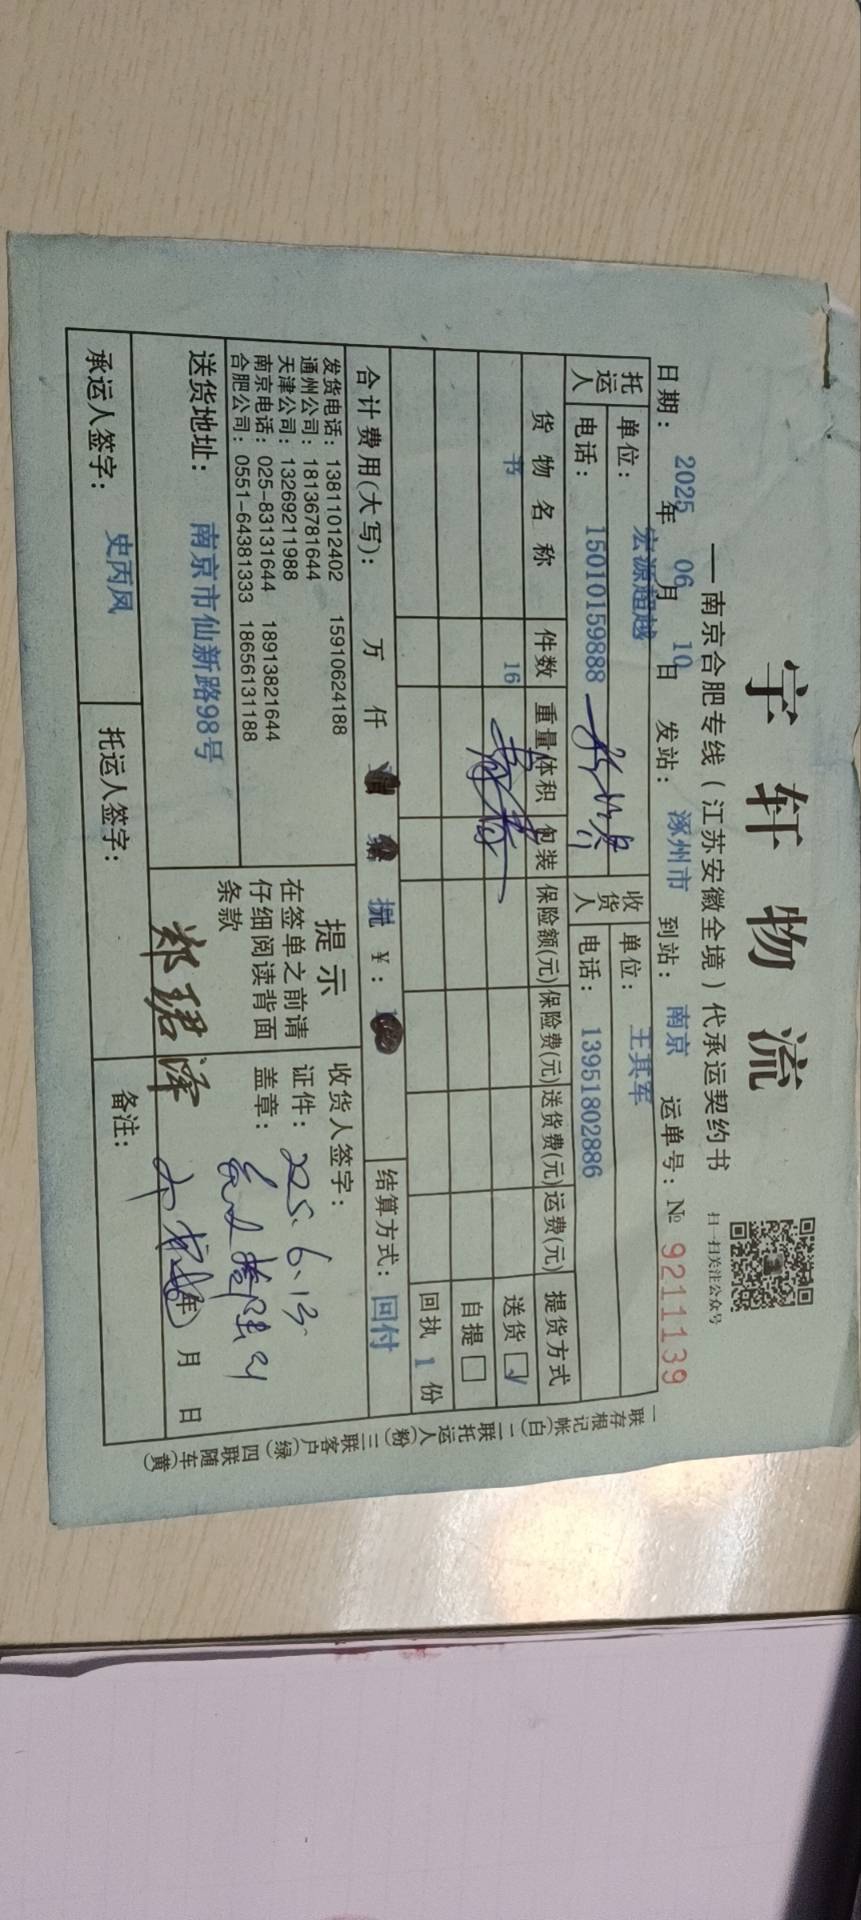 宇轩物流
—南京合肥专线(江苏安徽全境)代承运契约书
扫一扫关注公众号
日期: 2025年 06月 10日 发站: 涿州市 到站: 南京 运单号: № 9211139
托运人 单位: 宏源超越 收货人 单位: 王其军
电话: 15010159888 电话: 13951802886
货物名称 件数 重量体积 包装 保险额(元) 保险费(元) 送货费(元) 运费(元) 提货方式
书 16 送货 ☑
自提 □
回执 1 份
合计费用(大写): 万 仟 ¥: 结算方式: 回付
发货电话: 13811012402 15910624188
通州公司: 18136781644
天津公司: 13269211988
南京电话: 025-83131644 18913821644
合肥公司: 0551-64381333 18656131188
提示
在签单之前请
仔细阅读背面
条款
收货人签字:
证件: 225.6.13
盖章:
年 月 日
送货地址: 南京市仙新路98号
郑珺泽
承运人签字: 史丙凤 托运人签字: 备注:
一联存根记帐(白) 二联托运人(粉) 三联客户(绿) 四联随车(黄)